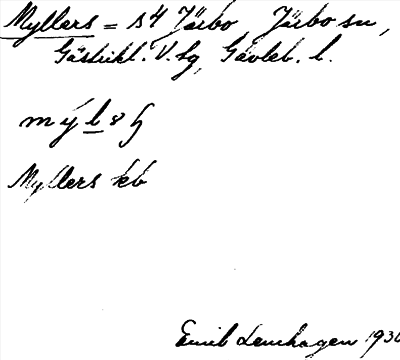 Myllers = s4 Järbo, Järbo sn,
Gästrikl. V. tg, Gävleb. l.
Myllers kb
Emil Lenhagen 1930